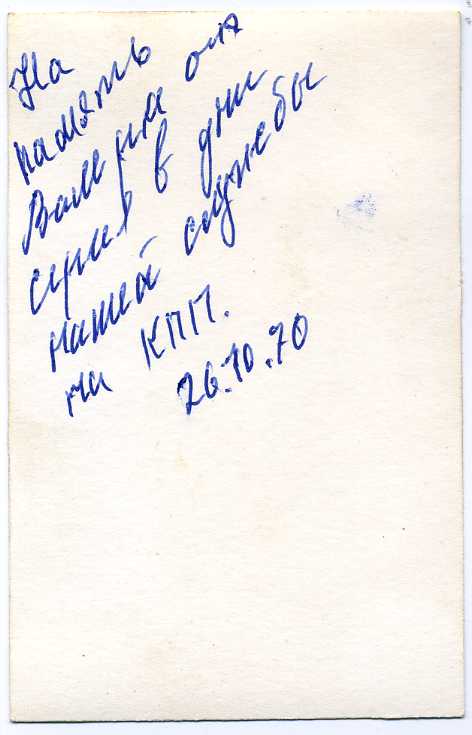 На
память
от
в дни
нашей службы
на КПП.
26.10.70